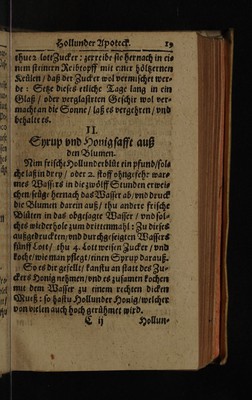 Hollunder Apoteck. 19
thue 2 lote Zucker: zerreibe sie hernach in ei-
nem steinern Reibtopff mit einer höltzernen
Keulen / daß der Zucker wol vermischet wer-
de: Setze dieses etliche Tage lang in ein
Glaß / oder verglasirten Geschir wol ver-
macht an die Sonne / laß es vergehren / vnd
behalte es.
II.
Syrup vnd Honigsafft auß
den Blumen.
Nim frische Hollunderblüt ein pfund / sols
che laß in drey / oder 2. stoff ohngefehr war-
mes Wassers in die zwölff Stunden erwei-
chen / seüge hernach das Wasser ab / vnd druck
die Blumen darein auß / thu andere frische
Blüten in das obgesagte Wasser / vnd sol-
ches wiederhole zum drittenmahl: Zu dieses
außgedruckten / vnd durchgeseigten Wassers
fünff Lott / thu 4. Lott weissen Zucker / vnd
koche / wie man pfleget / einen Syrup darauß.
So es dir gefellt / kanstu an statt des Zu-
ckers Honig nehmen / vnd es zusamen kochen
mit dem Wasser zu einem rechten dicken
Muß: so hastu Hollunder Honig / welcher
von vielen auch hoch gerühmet wird.
C ij Hollun-